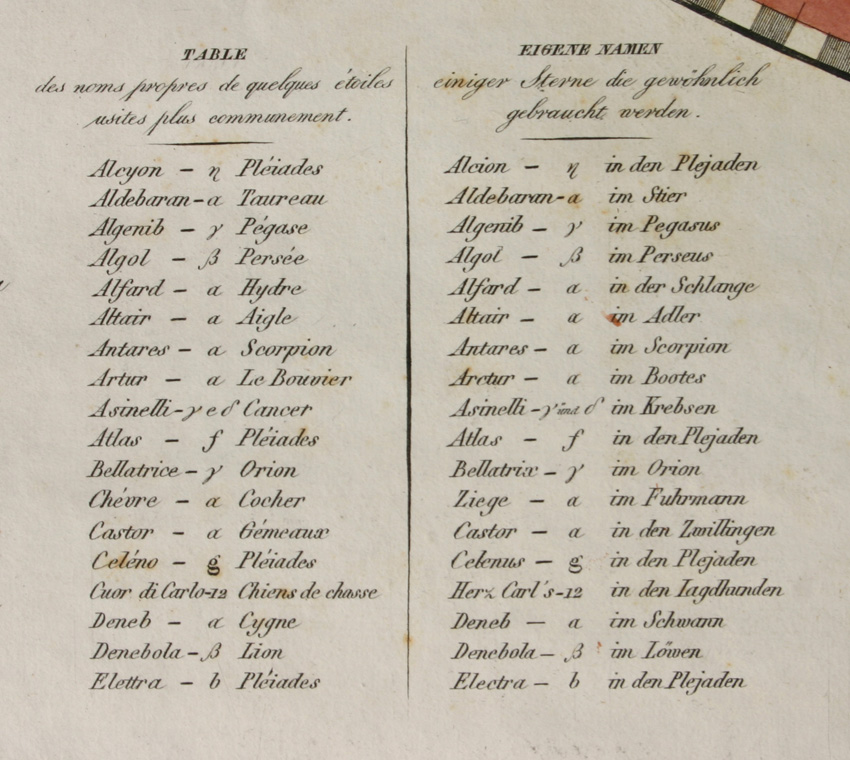 TABLE
des noms propres de quelques étoiles
usites plus communement.
Alcyon – η Pléiades
Aldebaran – α Taureau
Algenib – γ Pégase
Algol – β Persée
Alfard – α Hydre
Altair – α Aigle
Antares – α Scorpion
Artur – α Le Bouvier
Asinelli – γ e δ Cancer
Atlas – f Pléiades
Bellatrice – γ Orion
Chévre – α Cocher
Castor – α Gémeaux
Celéno – g Pléiades
Cuor di Carlo – 12 Chiens de chasse
Deneb – α Cygne
Denebola – β Lion
Elettra – b Pléiades
EIGENE NAMEN
einiger Sterne die gewöhnlich
gebraucht werden.
Alcion – η in den Plejaden
Aldebaran – α im Stier
Algenib – γ im Pegasus
Algol – β im Perseus
Alfard – α in der Schlange
Altair – α im Adler
Antares – α im Scorpion
Arctur – α im Bootes
Asinelli – γ und δ im Krebsen
Atlas – f in den Plejaden
Bellatrix – γ im Orion
Ziege – α im Fuhrmann
Castor – α in den Zwillingen
Celenus – g in den Plejaden
Herz Carl's – 12 in den Iagdhunden
Deneb – α im Schwann
Denebola – β im Löwen
Electra – b in den Plejaden